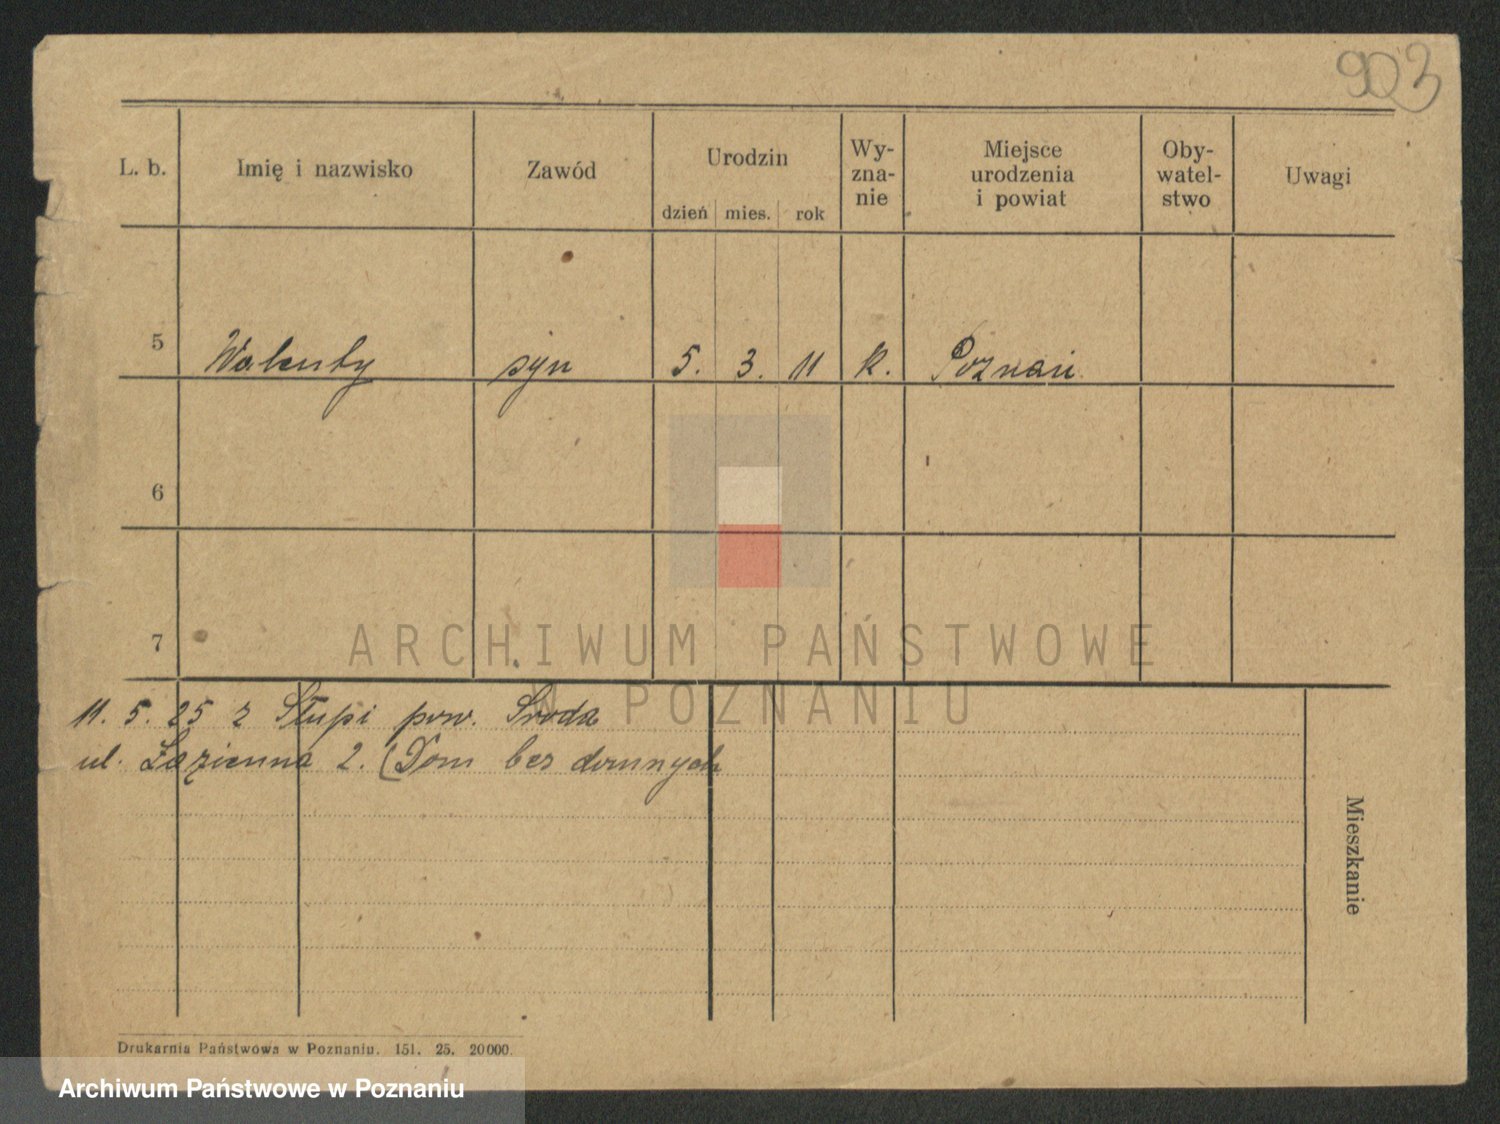 903
L. b. Imię i nazwisko Zawód Urodzin dzień mies. rok Wy-zna-nie Miejsce urodzenia i powiat Oby-watel-stwo Uwagi
5 Walenty syn 5. 3. 11 k. Poznań
6
7
11. 5. 25 z Słupi pow. Środa
ul. Łazienna 2. (Dom bez domnych
Mieszkanie
Drukarnia Państwowa w Poznaniu. 151. 25. 20000.
ARCHIWUM PAŃSTWOWE
W POZNANIU
Archiwum Państwowe w Poznaniu